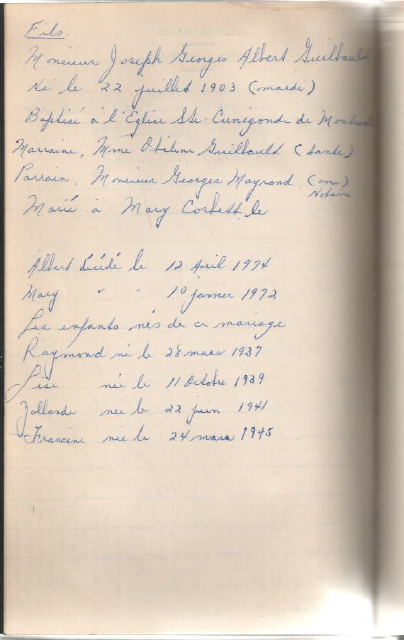 Fils.
Monsieur Joseph Georges Albert Guilbault
Né le 22 juillet 1903 (mardi)
Baptisé à l'Eglise Ste. Cunégonde de Montréal
Marraine, Mme Obéline Guilbault (tante)
Parrain, Monsieur Georges Mayrand (ami)
Notaire
Marié à Mary Corbett le
Albert décédé le 12 Avril 1974
Mary " " 10 janvier 1972
Les enfants nés de ce mariage
Raymond né le 28 mars 1937
Lise née le 11 Octobre 1939
Yollande née le 22 juin 1941
Francine née le 24 mars 1945